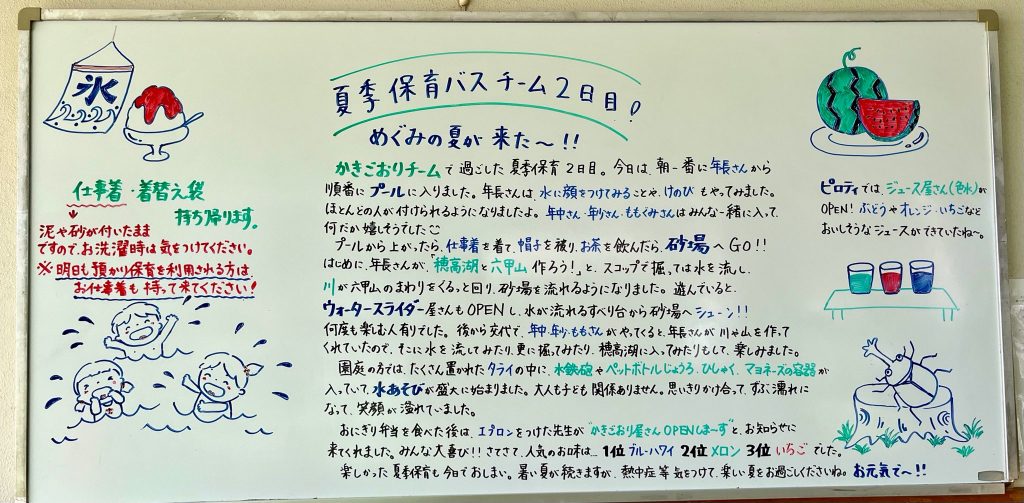 氷
夏季保育バスチーム2日目!
めぐみの夏が来た〜!!
かきごおりチームで過ごした夏季保育2日目。今日は、朝一番に年長さんから
順番にプールに入りました。年長さんは、水に顔をつけてみることや、けのびもやってみました。
ほとんどの人が付けられるようになりましたよ。年中さん・年少さん・ももぐみさんはみんな一緒に入って、
何だか嬉しそうでした
プールから上がったら、仕事着を着て、帽子を被り、お茶を飲んだら、砂場へGO!!
はじめに、年長さんが、「穂高湖と六甲山作ろう!」と、スコップで掘っては水を流し、
川が六甲山のまわりをぐるっと回り、砂場を流れるようになりました。遊んでいると、
ウォータースライダー屋さんもOPENし、水が流れるすべり台から砂場へシューン!!
何度も楽しむ人有りでした。後から交代で、年中・年少・ももさんがやってくると、年長さんが川や山を作って
くれていたので、そこに水を流してみたり、更に掘ってみたり、穂高湖に入ってみたりもして、楽しみました。
園庭の方では、たくさん置かれたタライの中に、水鉄砲やペットボトルじょうろ、ひしゃく、マヨネーズの容器が
入っていて、水あそびが盛大に始まりました。大人も子ども関係ありません。思いきりかけ合って、ずぶ濡れに
なって、笑顔が溢れていました。
おにぎり弁当を食べた後は、エプロンをつけた先生が“かきごおり屋さんOPENしま〜す”と、お知らせに
来てくれました。みんな大喜び!!さてさて、人気のお味は…1位ブルーハワイ 2位メロン 3位いちごでした。
楽しかった夏季保育も今日でおしまい。暑い夏が続きますが、熱中症等気をつけて、楽しい夏をお過ごしくださいね。お元気で〜!!
仕事着・着替え袋
持ち帰ります。
泥や砂が付いたまま
ですので、お洗濯時は気をつけてください。
※明日も預かり保育を利用される方は、
お仕事着も持って来てください!
ピロティでは、ジュース屋さん(色水)が
OPEN!ぶどうやオレンジ・いちごなど
おいしそうなジュースができていたね〜。